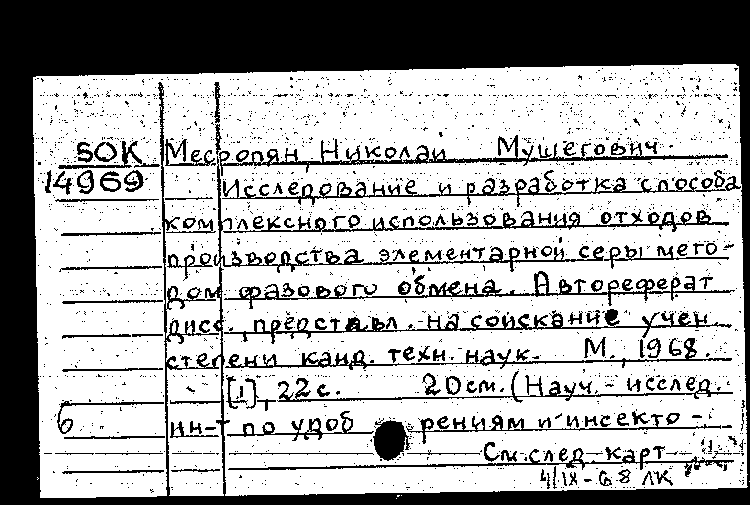 SOK Месропян, Николай Мушегович.
14969 Исследование и разработка способа
комплексного использования отходов
производства элементарной серы мето-
дом фазового обмена. Автореферат
дисс., представл. на соискание учен.
степени канд. техн. наук. М., 1968.
[1], 22 с. 20 см. (Науч.-исслед.
б ин-т по удобрениям и инсекто-
См. след. карт
4/IX-68 ЛК